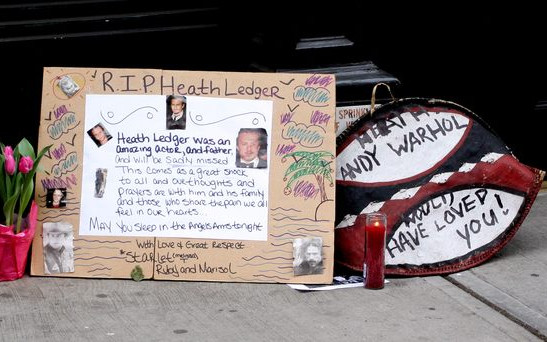 R.I.P. Heath Ledger
Heath Ledger was an
amazing actor, and father,
and will be sadly missed
This comes as a great shock
to all and our thoughts and
prayers are with him and his family
and those who share the pain we all
feel in our hearts...
May you sleep in the Angels Arms tonight
With Love & Great Respect
Starlet
Ruby and Marisol
SPRIN
HEATH
ANDY WARHOL
WOULD
HAVE LOVED
YOU!